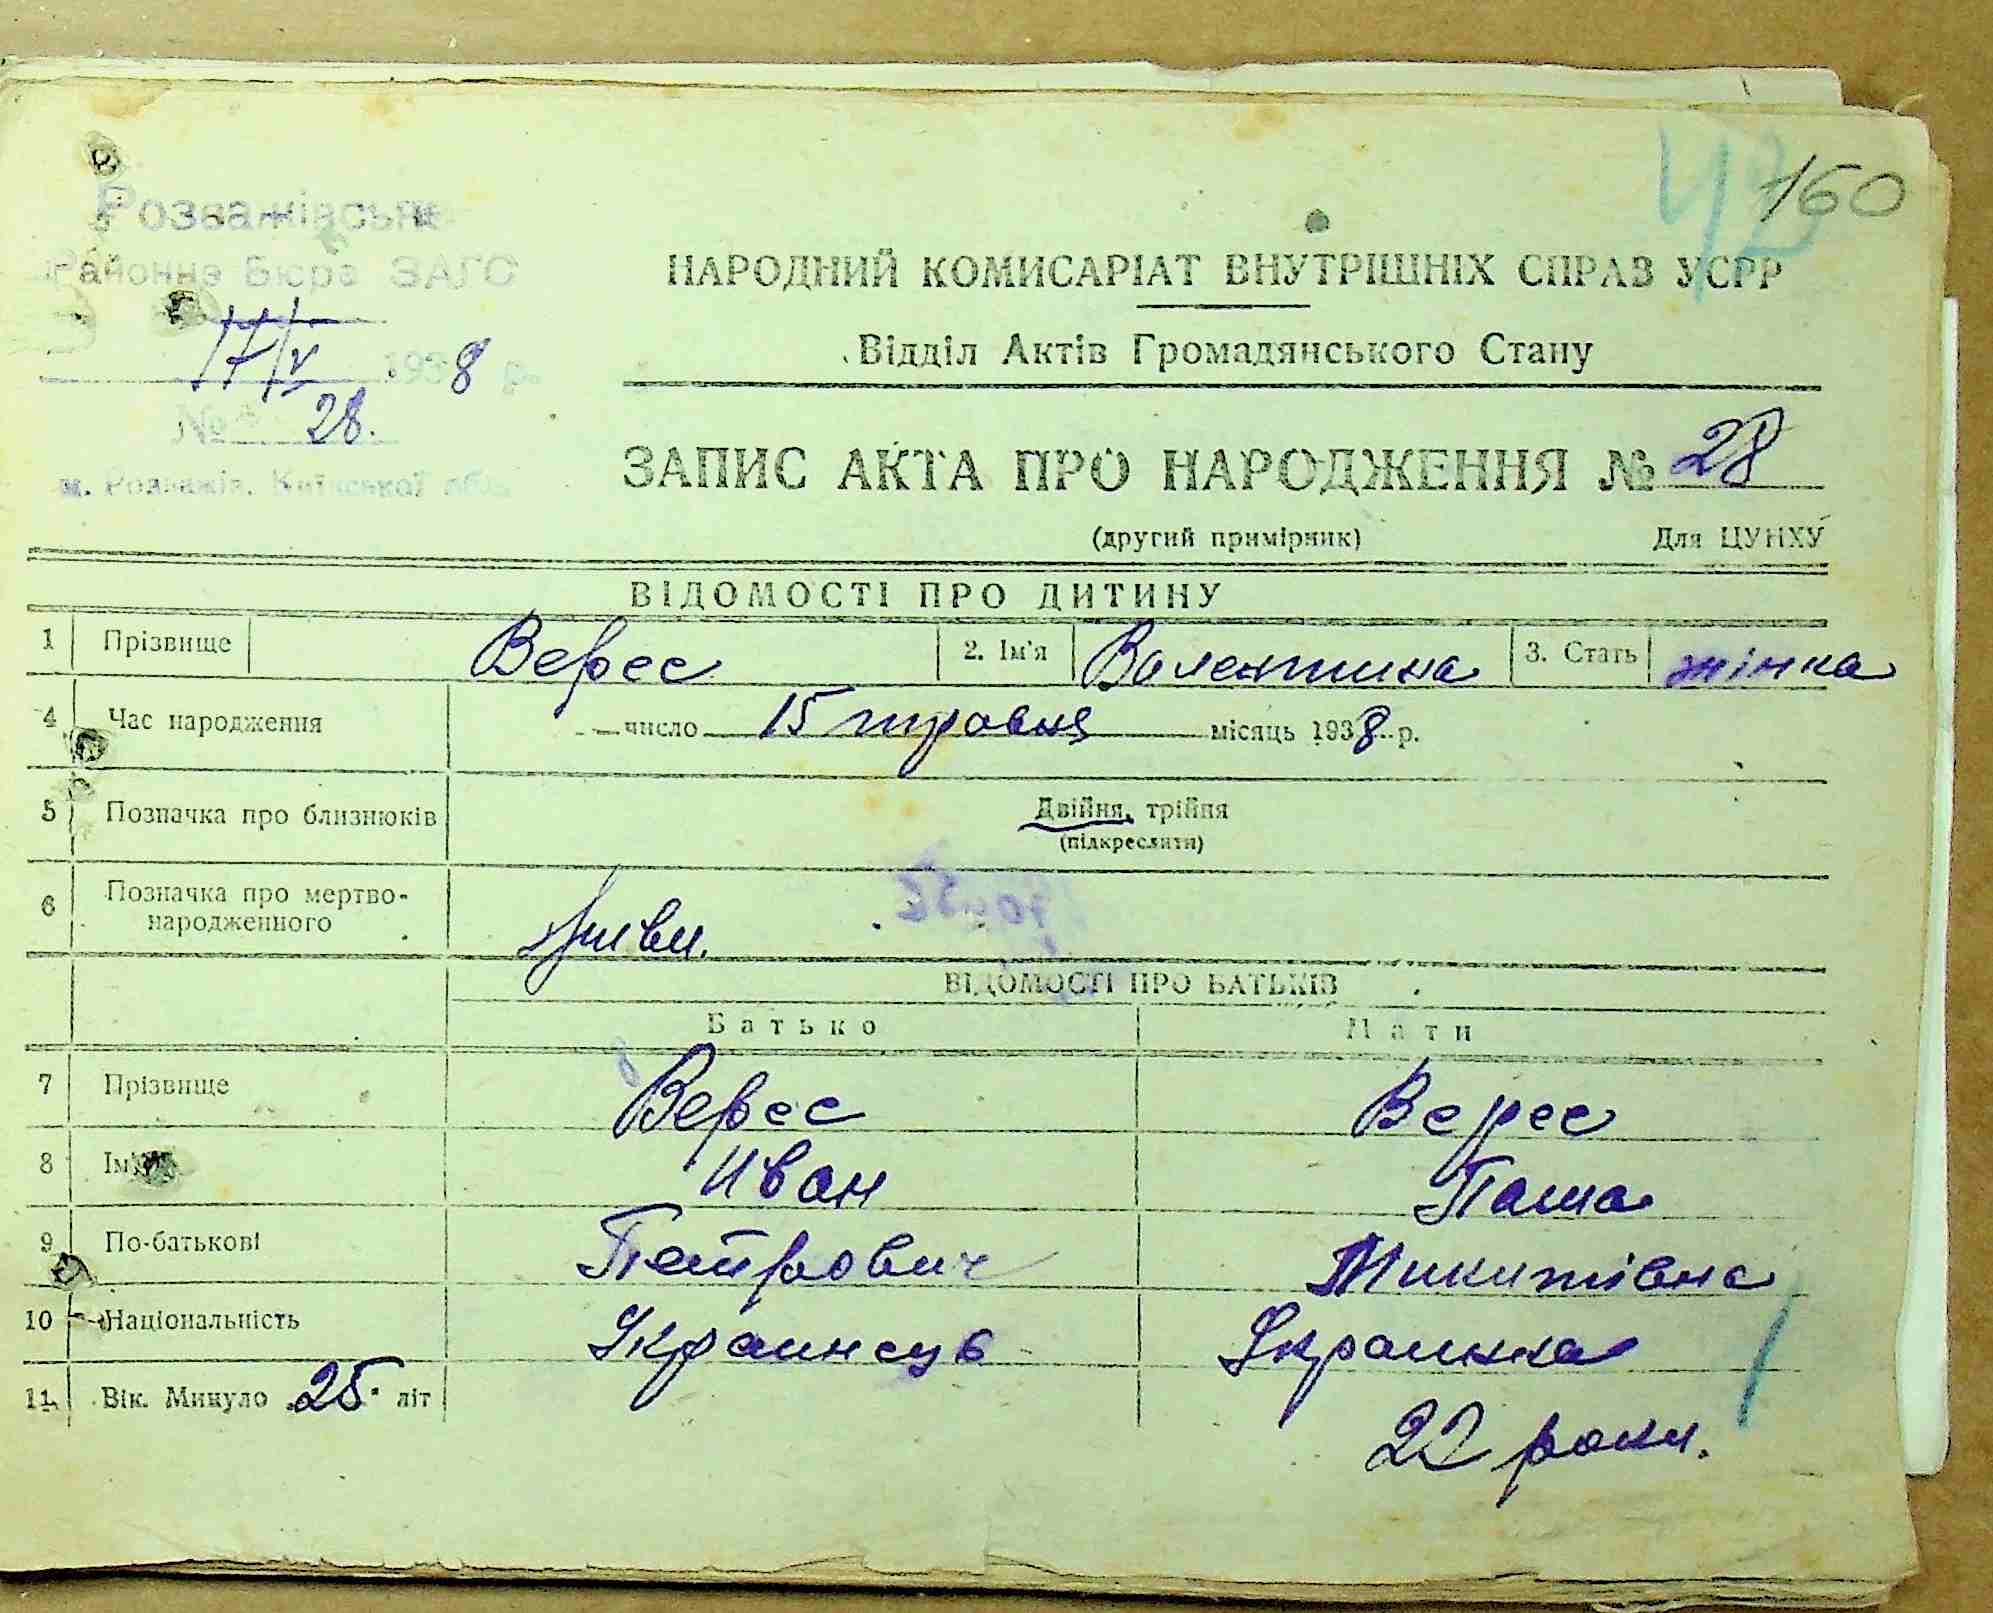 Розважівське
Районне Бюро ЗАГС
17/V 1938 р.
№ 28.
м. Розважів, Київської обл.
160
НАРОДНИЙ КОМИСАРІАТ ВНУТРІШНІХ СПРАВ УСРР
Відділ Актів Громадянського Стану
ЗАПИС АКТА ПРО НАРОДЖЕННЯ № 28
(другий примірник) Для ЦУНХУ
ВІДОМОСТІ ПРО ДИТИНУ
1 Прізвище Верес 2. Ім'я Валентина 3. Стать жінка
4 Час народження число 15 травня місяць 1938 р.
5 Позначка про близнюків Двійня, трійня
(підкреслити)
6 Позначка про мертво-
народженного живи.
ВІДОМОСТІ ПРО БАТЬКІВ
Батько Мати
7 Прізвище Верес Верес
8 Ім'я Иван Паша
9 По-батькові Петрович Микитівна
10 Національність Украинець Украинка
11 Вік. Минуло 25 літ 22 роки.